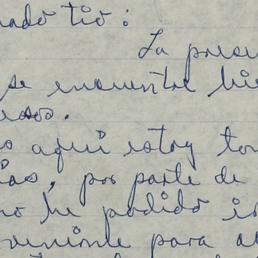 nado tío:
La presen
se encuentre bie
esos.
o aquí estoy tom
ías, pos parte de
no he podido is
veniente para a